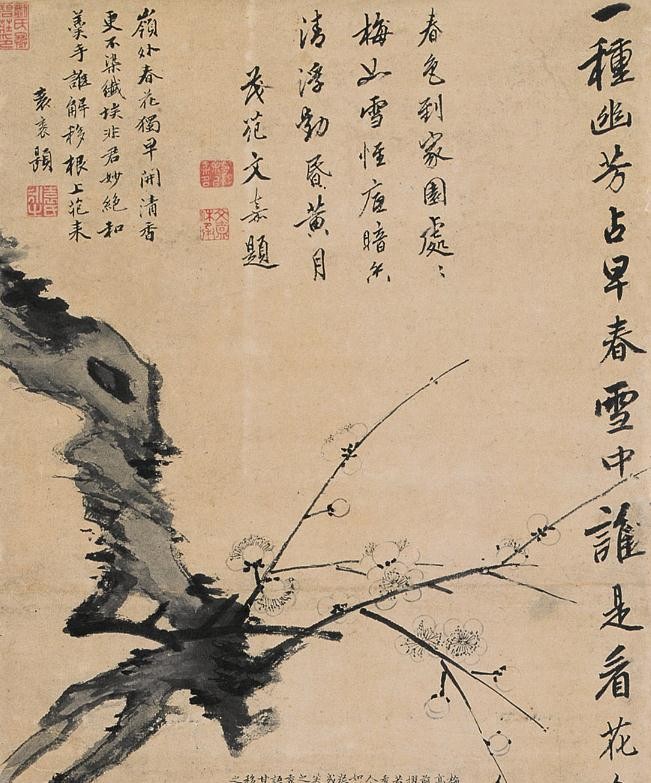 一種幽芳占早春雪中誰是看花
春色到家園處〻
梅如雪恠底暗香
清浮動昏黃月
茂苑文嘉題
嶺外春花獨早開清香
更不染纖埃非君妙絕和
羹手誰解移根上苑來
袁袠題